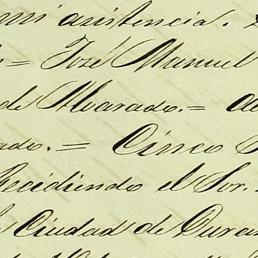 mi asistencia.
= José Manuel
de Alvarado. =
ado. = Cinco
Presidiendo el Sor.
Ciudad de Duran